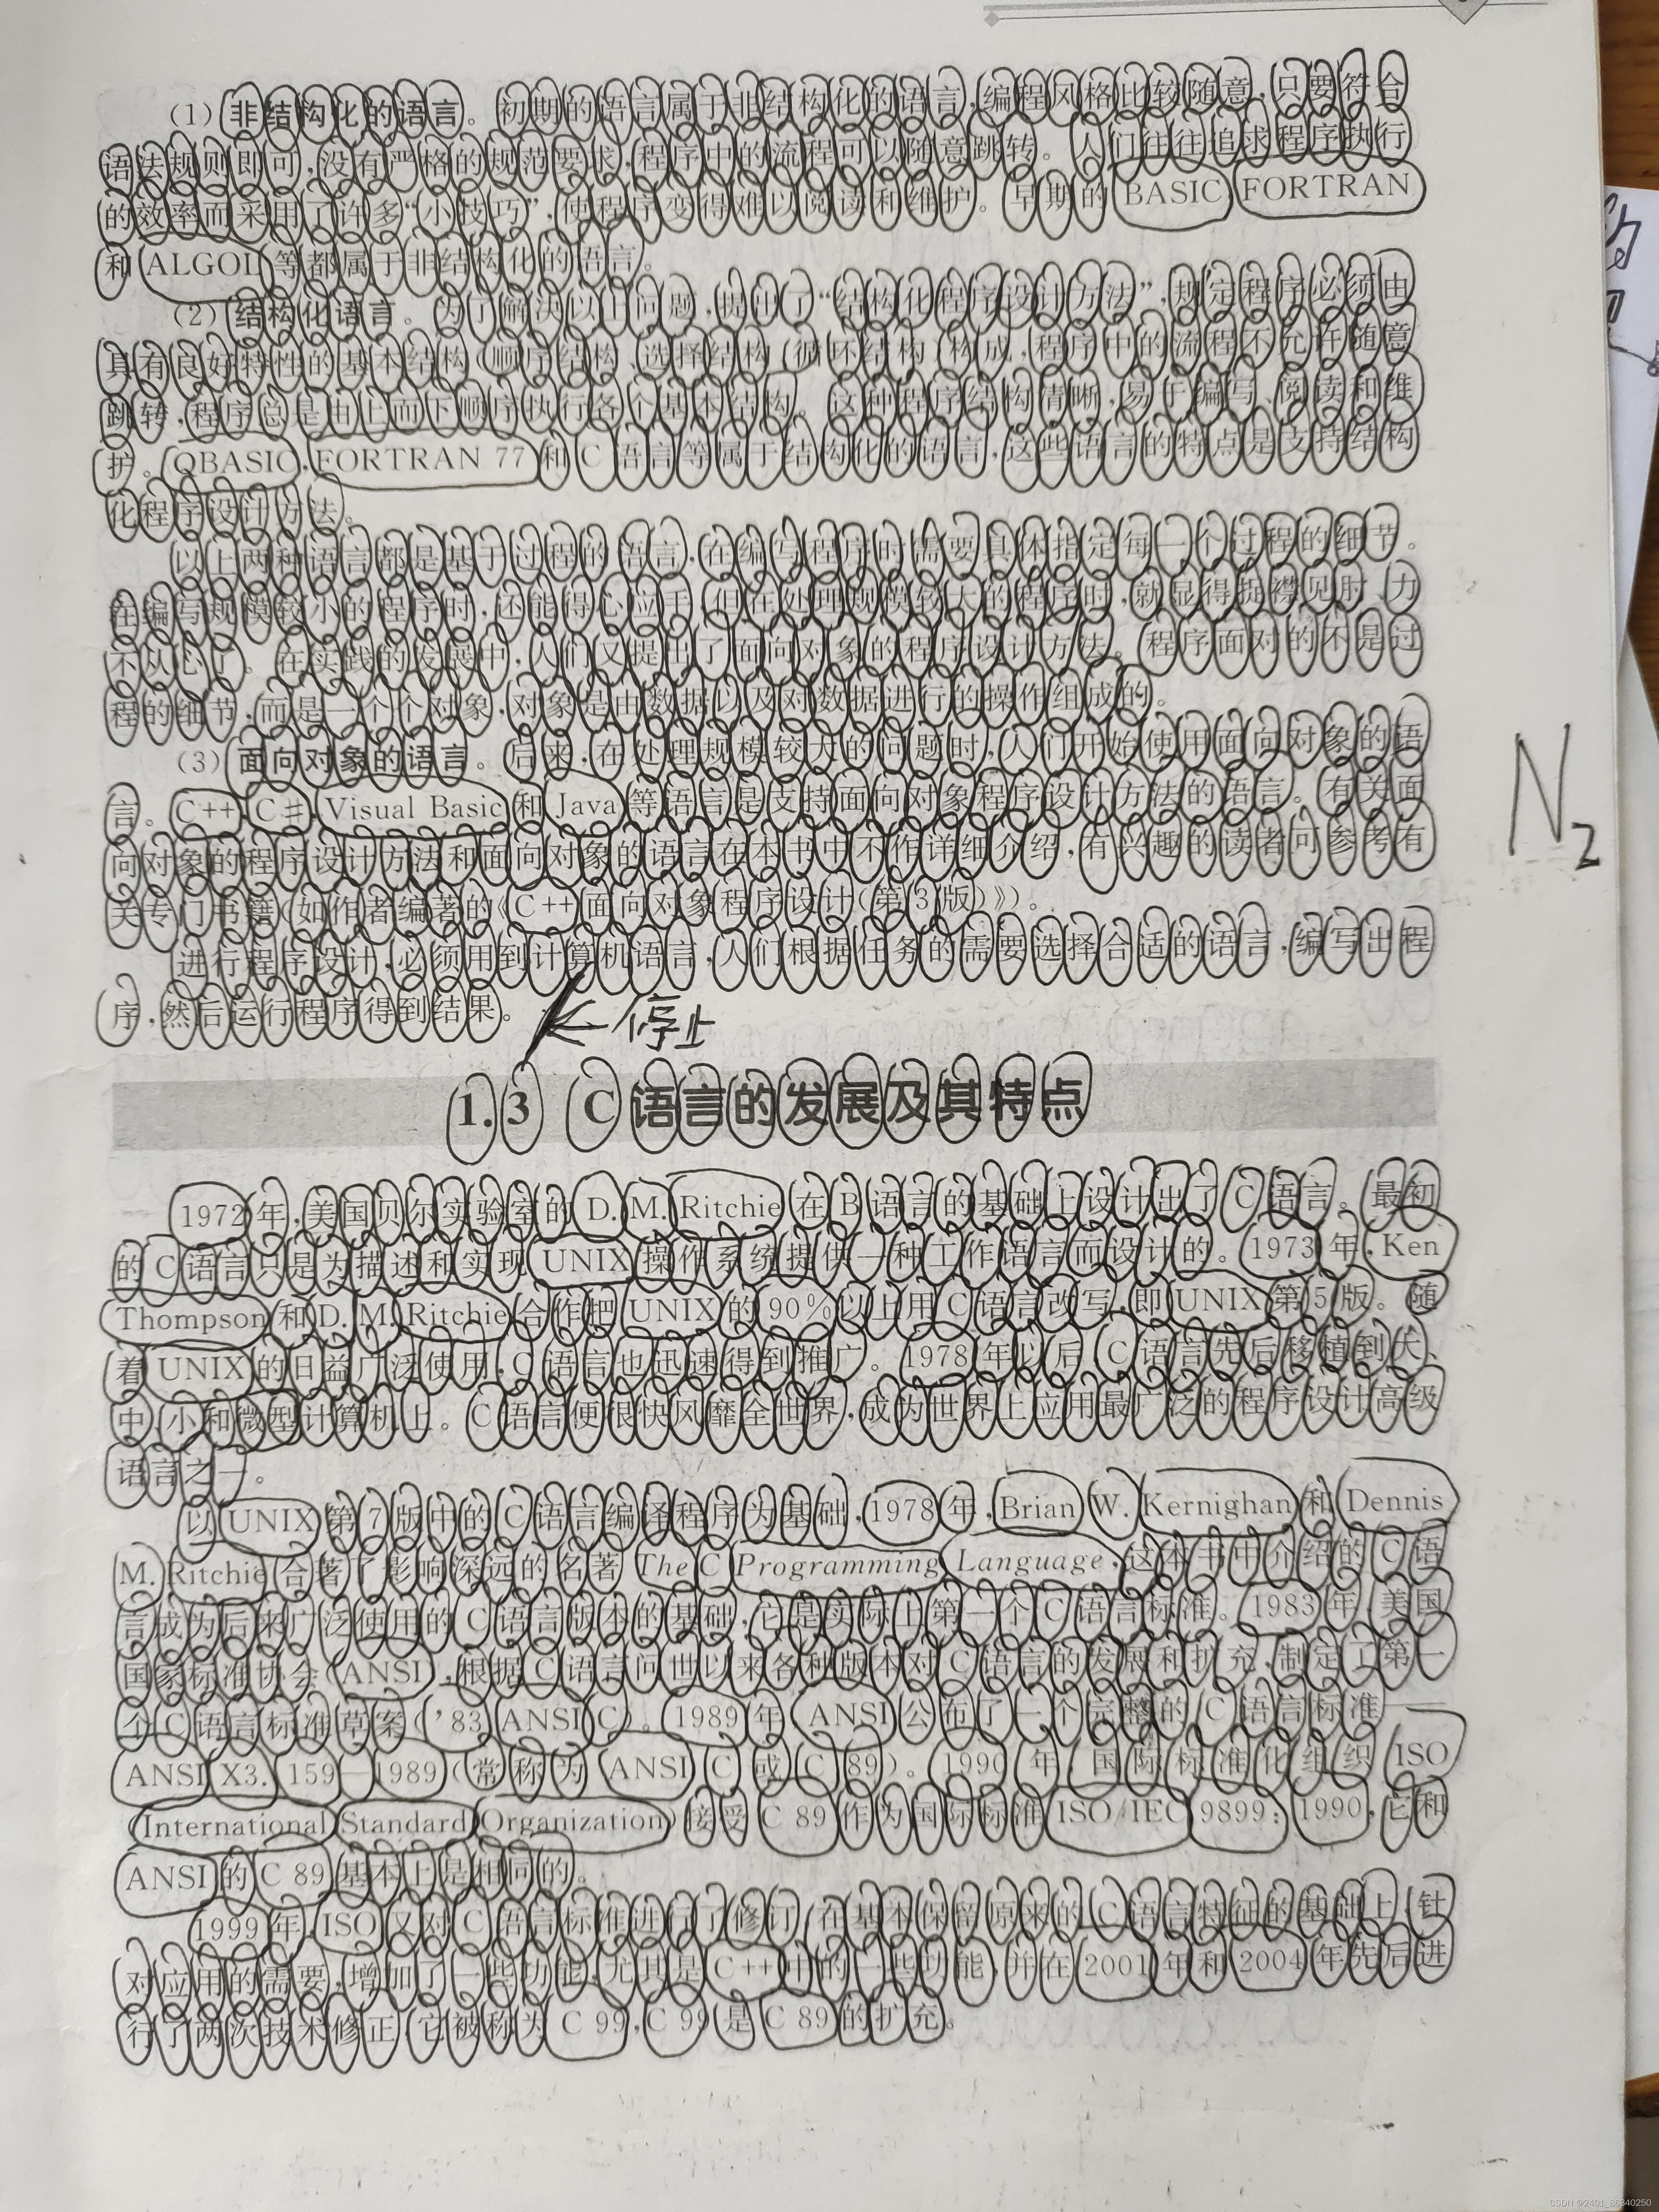 (1) 非结构化的语言。初期的语言属于非结构化的语言,编程风格比较随意,只要符合
语法规则即可,没有严格的规范要求,程序中的流程可以随意跳转。人们往往追求程序执行
的效率而采用了许多“小技巧”,使程序变得难以阅读和维护。早期的 BASIC FORTRAN
和 ALGOL 等都属于非结构化的语言。
(2) 结构化语言。为了解决以上问题,提出了“结构化程序设计方法”,规定程序必须由
具有良好特性的基本结构(顺序结构、选择结构、循环结构)构成,程序中的流程不允许随意
跳转,程序总是由上而下顺序执行各个基本结构。这种程序结构清晰,易于编写、阅读和维
护。QBASIC,FORTRAN 77 和 C 语言等属于结构化的语言,这些语言的特点是支持结构
化程序设计方法。
以上两种语言都是基于过程的语言,在编写程序时需要具体指定每一个过程的细节。
在编写规模较小的程序时,还能得心应手,但在处理规模较大的程序时,就显得捉襟见肘、力
不从心了。在实践的发展中,人们又提出了面向对象的程序设计方法。程序面对的不是过
程的细节,而是一个个对象,对象是由数据以及对数据进行的操作组成的。
(3) 面向对象的语言。后来,在处理规模较大的问题时,人们开始使用面向对象的语
言。C++,C#,Visual Basic 和 Java 等语言是支持面向对象程序设计方法的语言。有关面
向对象的程序设计方法和面向对象的语言在本书中不作详细介绍,有兴趣的读者可参考有
关专门书籍(如作者编著的《C++面向对象程序设计(第3版)》)。
进行程序设计,必须用到计算机语言,人们根据任务的需要选择合适的语言,编写出程
序,然后运行程序得到结果。
停止
N2
1.3 C 语言的发展及其特点
1972 年,美国贝尔实验室的 D. M. Ritchie 在 B 语言的基础上设计出了 C 语言。最初
的 C 语言只是为描述和实现 UNIX 操作系统提供一种工作语言而设计的。1973 年,Ken
Thompson 和 D. M. Ritchie 合作把 UNIX 的 90%以上用 C 语言改写,即 UNIX 第 5 版。随
着 UNIX 的日益广泛使用,C 语言也迅速得到推广。1978 年以后,C 语言先后移植到大、
中、小和微型计算机上。C 语言便很快风靡全世界,成为世界上应用最广泛的程序设计高级
语言之一。
以 UNIX 第 7 版中的 C 语言编译程序为基础,1978 年,Brian W. Kernighan 和 Dennis
M. Ritchie 合著了影响深远的名著 The C Programming Language,这本书中介绍的 C 语
言成为后来广泛使用的 C 语言版本的基础,它是实际上第一个 C 语言标准。1983 年,美国
国家标准协会(ANSI),根据 C 语言问世以来各种版本对 C 语言的发展和扩充,制定了第一
个 C 语言标准草案('83 ANSI C)。1989 年,ANSI 公布了一个完整的 C 语言标准——
ANSI X3.159—1989(常称为 ANSI C 或 C 89)。1990 年,国际标准化组织 ISO
(International Standard Organization)接受 C 89 作为国际标准 ISO/IEC 9899:1990,它和
ANSI 的 C 89 基本上是相同的。
1999 年,ISO 又对 C 语言标准进行了修订,在基本保留原来的 C 语言特征的基础上,针
对应用的需要,增加了一些功能,尤其是 C++中的一些功能,并在 2001 年和 2004 年先后进
行了两次技术修正,它被称为 C 99,C 99 是 C 89 的扩充。
CSDN @2401_80840250